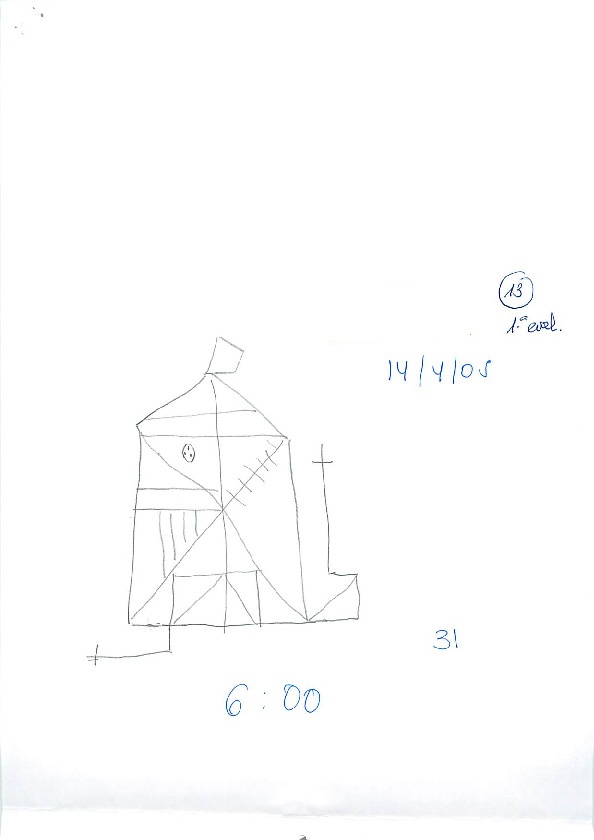 13
1.ª eval.
14/4/05
31
6:00